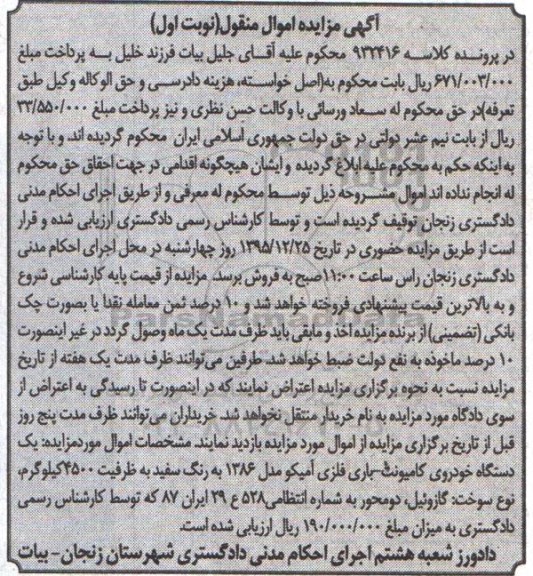 آگهی مزایده اموال منقول(نوبت اول)
در پرونده کلاسه ۹۳۲۴۱۶ محکوم علیه آقای جلیل بیات فرزند خلیل به پرداخت مبلغ
۶۷۱/۰۰۳/۰۰۰ ریال بابت محکوم به(اصل خواسته، هزینه دادرسی و حق الوکاله وکیل طبق
تعرفه)در حق محکوم له سعاد ورسائی با وکالت حسن نظری و نیز پرداخت مبلغ ۳۳/۵۵۰/۰۰۰
ریال از بابت نیم عشر دولتی در حق دولت جمهوری اسلامی ایران محکوم گردیده اند و با توجه
به اینکه حکم به محکوم علیه ابلاغ گردیده و ایشان هیچگونه اقدامی در جهت احقاق حق محکوم
له انجام نداده اند اموال مشروحه ذیل توسط محکوم له معرفی و از طریق اجرای احکام مدنی
دادگستری زنجان توقیف گردیده است و توسط کارشناس رسمی دادگستری ارزیابی شده و قرار
است از طریق مزایده حضوری در تاریخ ۱۳۹۵/۱۲/۲۵ روز چهارشنبه در محل اجرای احکام مدنی
دادگستری زنجان راس ساعت ۱۱:۰۰صبح به فروش برسد. مزایده از قیمت پایه کارشناسی شروع
و به بالاترین قیمت پیشنهادی فروخته خواهد شد و ۱۰ درصد ثمن معامله نقدا یا بصورت چک
بانکی (تضمینی) از برنده مزایده اخذ و مابقی باید ظرف مدت یک ماه وصول گردد در غیر اینصورت
۱۰ درصد ماخوذه به نفع دولت ضبط خواهد شد- طرفین می توانند ظرف مدت یک هفته از تاریخ
مزایده نسبت به نحوه برگزاری مزایده اعتراض نمایند که در اینصورت تا رسیدگی به اعتراض از
سوی دادگاه مورد مزایده به نام خریدار منتقل نخواهد شد. خریداران می توانند ظرف مدت پنج روز
قبل از تاریخ برگزاری مزایده از اموال مورد مزایده بازدید نمایند. مشخصات اموال موردمزایده: یک
دستگاه خودروی کامیونت-باری فلزی آمیکو مدل ۱۳۸۶ به رنگ سفید به ظرفیت ۴۵۰۰کیلوگرم،
نوع سوخت: گازوئیل، دومحور به شماره انتظامی۵۲۸ ع ۲۹ ایران ۸۷ که توسط کارشناس رسمی
دادگستری به میزان مبلغ ۱۹۰/۰۰۰/۰۰۰ ریال ارزیابی شده است.
دادورز شعبه هشتم اجرای احکام مدنی دادگستری شهرستان زنجان- بیات
ParsNamadData